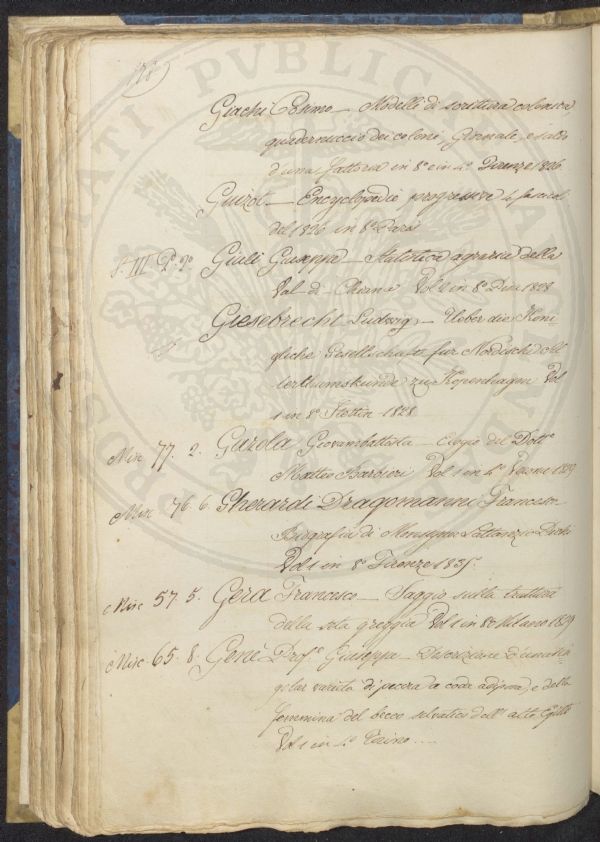 PROSPERITATI PUBLICAE AUGENDAE
Giachi Cosimo _ Modelli di scrittura colonica,
quadernuccio dei coloni, Giornale, e saldo
d'una fattoria in 8° e in 4° Firenze 1826
Guizot _ Encyclopedie progressive
del 1826 in 8° Paris
S. III P. 9°. Giuli Giuseppe _ Statistica agraria della
Val-di-Chiana Vol 2 in 8° Pisa 1828
Giesebrecht Ludwig _ Ueber die Koni-
gliche Gesellschaft fur Nordische Al-
terthumskunde zu Kopenhagen Vol
1 in 8° Stettin 1828
Misc 77. 2. Gazola Giovambattista _ Elogio del Dott.
Matteo Barbieri Vol 1 in 4° Verona 1829
Misc 76. 6. Gherardi Dragomanni Francesco _
Biografia di Monsignor Lattanzio
Vol 1 in 8° Firenze 1835.
Misc 57. 5. Gera Francesco _ Saggio sulla trattura
della seta greggia Vol 1 in 8° Milano 1829
Misc. 65. 8. Gené Prof.e Giuseppe _ Descrizione d'una sin-
golar varietà di pecora a coda adiposa, e della
femmina del becco selvatico dell'alto Egitto
Vol 1 in 4° Torino ....